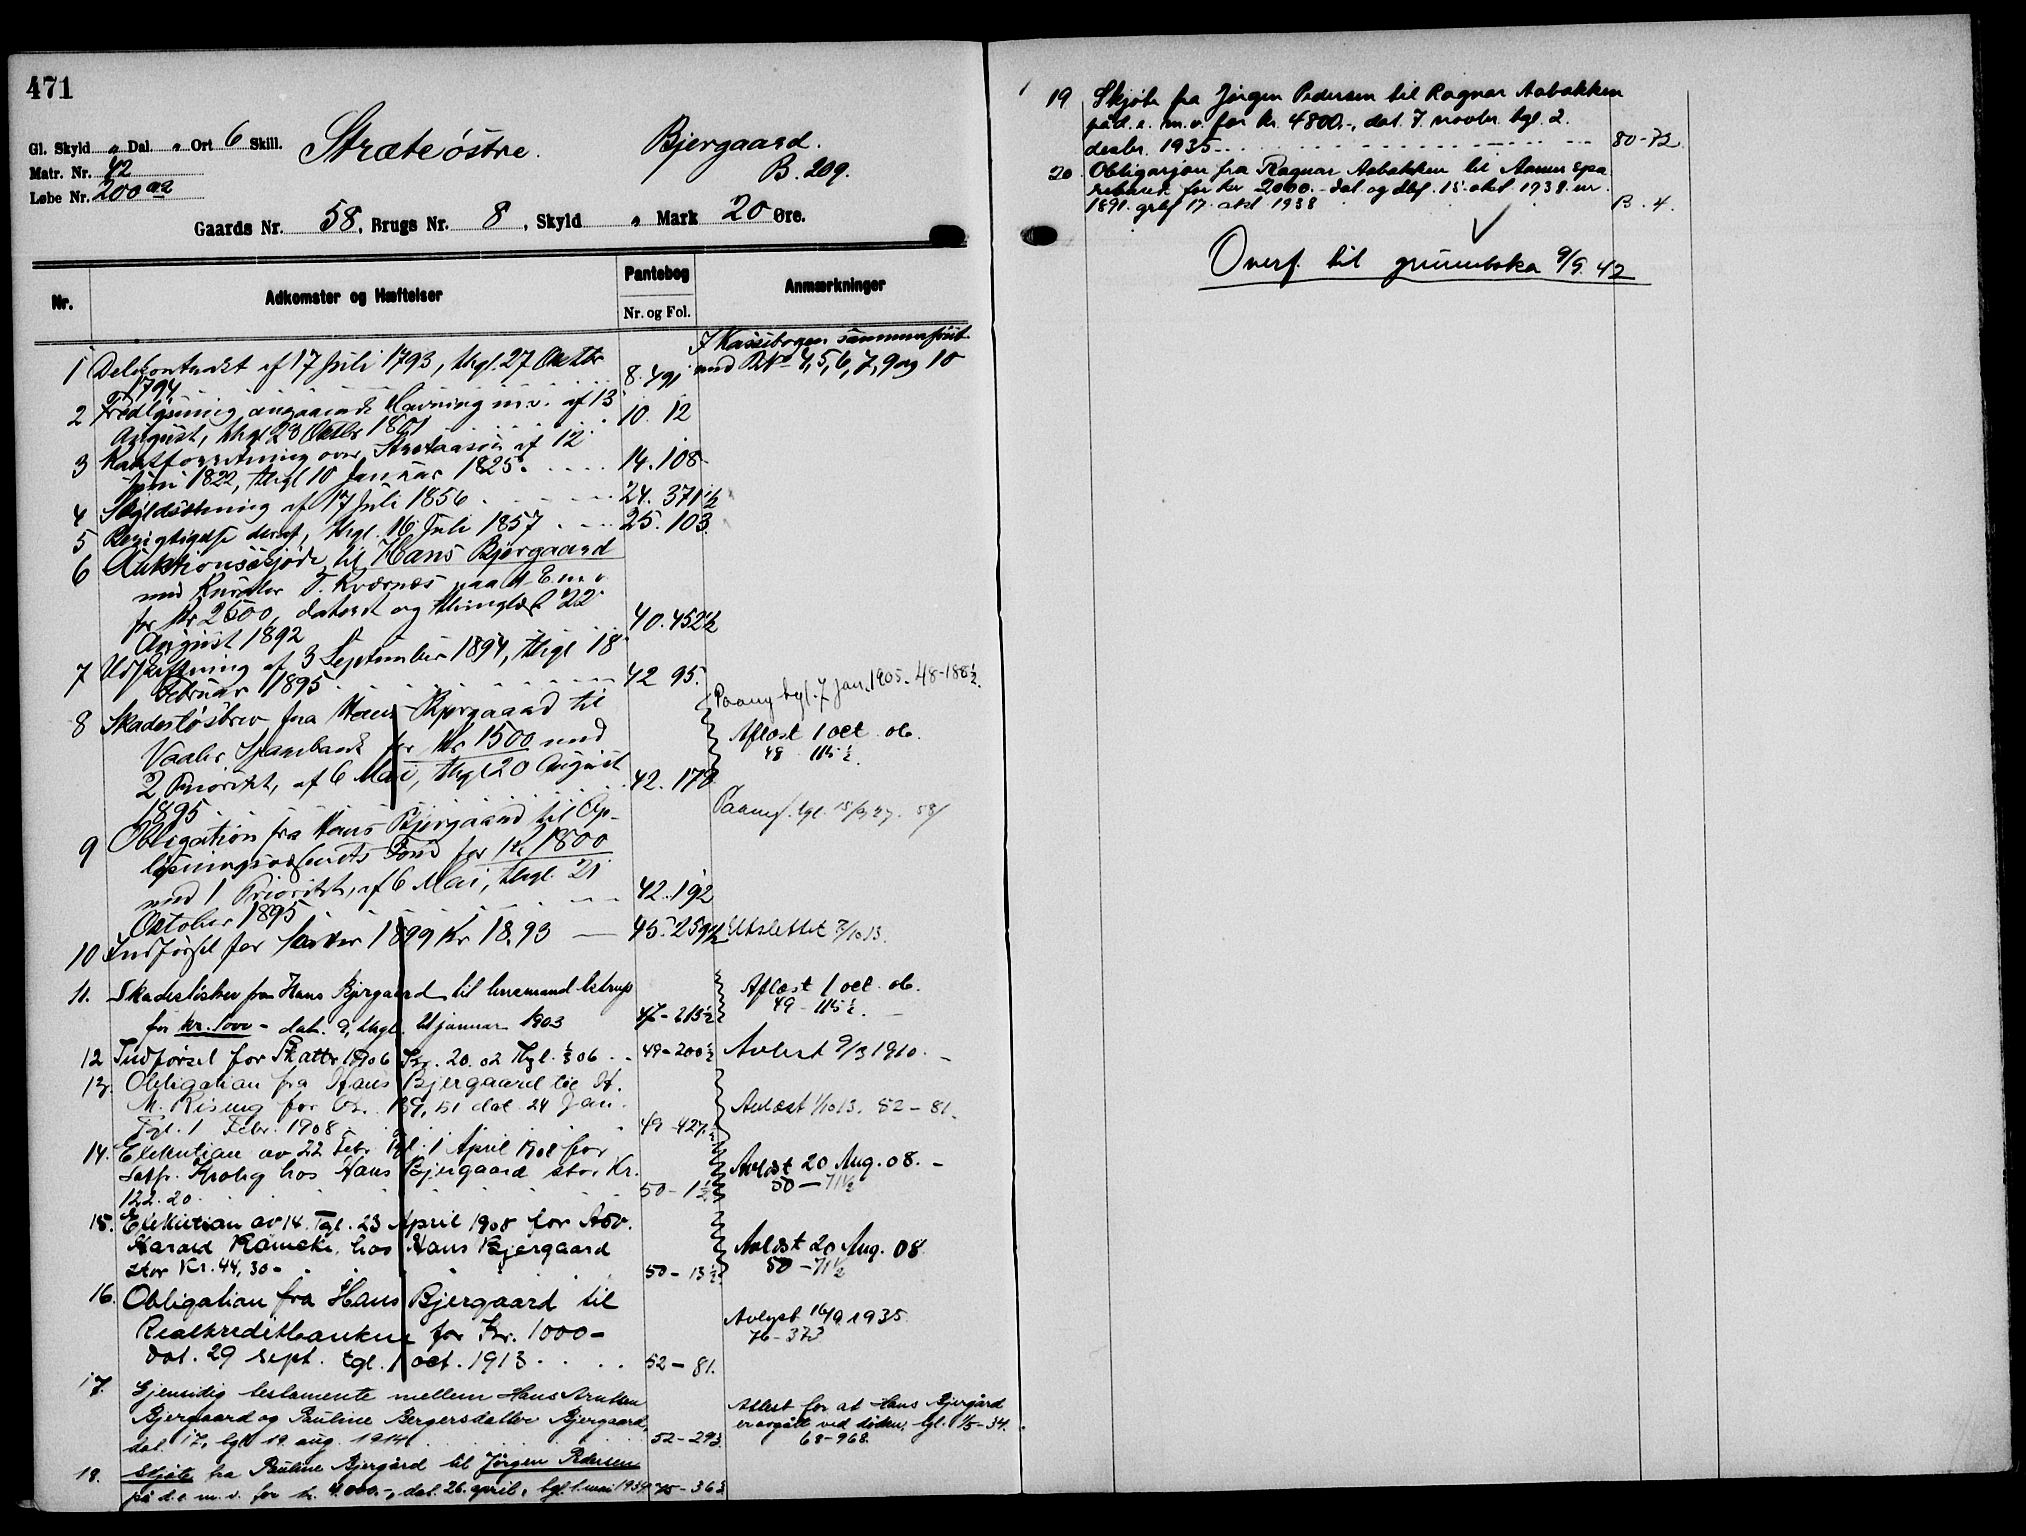 471
Gl. Skyld „ Dal. „ Ort 6 Skill.
Matr. Nr. 42
Løbe Nr. 200 a2
Stræte østre.
Bjergaard.
B. 209.
Gaards Nr. 58, Brugs Nr. 8, Skyld „ Mark 20 Øre.
Nr.
Adkomster og Hæftelser
Pantebog
Nr. og Fol.
Anmærkninger
1 Delekontrakt af 17 Juli 1793, thgl. 27 Oktbr
1794 8. 491
I Kassebogen sammenført
med BNo 4, 5, 6, 7, 9 og 10
2 Fredlysning angaaende Havning m.v. af 13
August, thgl 28 Oktbr 1801 10. 12
3 over af 12
Juni 1822, thgl 10 Januar 1825. 14. 108
4 Skyldsætning af 17 Juli 1856 24. 371 1/2
5 Berigtigelse deraf, thgl. 16 Juli 1857 25. 103.
6 Auktionsskjøde til Hans Bjørgaard
med T. Kværnæs paa d. E. m. v
for Kr 2600, dateret og thinglæst 22
August 1892 40. 452 1/2
7 Udskiftning af 3 September 1894, thgl 18
Februar 1895 42 95.
8 Skadesløsbrev fra Hans Bjørgaard til
Vaaler Sparebank for Kr 1500 med
2 Prioritet, af 6 Mai, thgl 20 August
1895 42. 178
Paany tgl. 7 jan. 1905. 48-188 1/2.
Aflæst 1 oct. 06.
49 115 1/2.
9 Obligation fra Hans Bjørgaard til Op-
lysningsvæsenets Fond for Kr 1800
med 1 Prioritet, af 6 Mai, thgl. 21
Oktober 1895 42. 192
10 Indførsel for Skatter 1899 Kr 18.93 — 45. 259 1/2 Utslettet 7/10 13.
11. Skadesløsbrev fra Hans Bjørgaard til lensmand
for kr. 1000 - dat. 9, thgl. 21 januar 1903 47-215 1/2
Aflæst 1 oct. 06.
49 - 115 1/2.
12 Indførsel for Skatt 1906 Kr. 20.02 Tgl. 1/3 06 49-200 1/2 Avlæst 9/3 1910. -
13. Obligation fra Hans Bjergaard til H.
M. Rising for Kr. 159,51 dat. 24 Jan.
Tgl. 1 Febr. 1908 49-427 1/2
Avlæst 1/10 13. 52 - 81.
14. Eksekution av 22 Febr. Tgl. 1 April 1908 for
hos Hans Bjergaard stor Kr.
122.20 50 - 1 1/2
Avlæst 20 Aug. 08. -
50 - 71 1/2
15. Eksekution av 14. Tgl. 23 April 1908 for Adv.
Harald hos Hans Bjergaard
stor Kr. 44,30 - 50 - 13 1/2.
Avlæst 20 Aug. 08.
50 - 71 1/2
16. Obligation fra Hans Bjergaard til
Realkreditbanken for Kr. 1000 -
dat. 29 sept. tgl. 1 oct. 1913 52 - 81.
Avlyst 16/9 1935
76 - 373
17. Gjensidig testamente mellem Hans Arntsen
Bjergaard og Pauline Bergersdatter Bjergaard,
dat. 17, tgl. 19. aug. 1914 52 - 293.
Attest for at Hans Bjergård
er avgått ved døden, tgl. 1/5-34.
68-968.
18. Skjøte fra Pauline Bjergård til Jørgen Pedersen
på d.e. m. v. for kr. 4.000.-, dat. 26. april, tgl. 1. mai 1934. 75 - 363
19 Skjøte fra Jørgen Pedersen til Ragnar Aabakken
på d. e. m. v. for kr. 4800.-, dat. 7. novbr. tgl. 2.
desbr. 1935 80-72.
20. Obligasjon fra Ragnar Aabakken til Aamer Spa
rebank for kr 2000.- dat. og dbf. 15. okt. 1938. nr.
1891. grbf 17. okt 1938 B. 4.
Overf. til grunnboka 9/9. 42